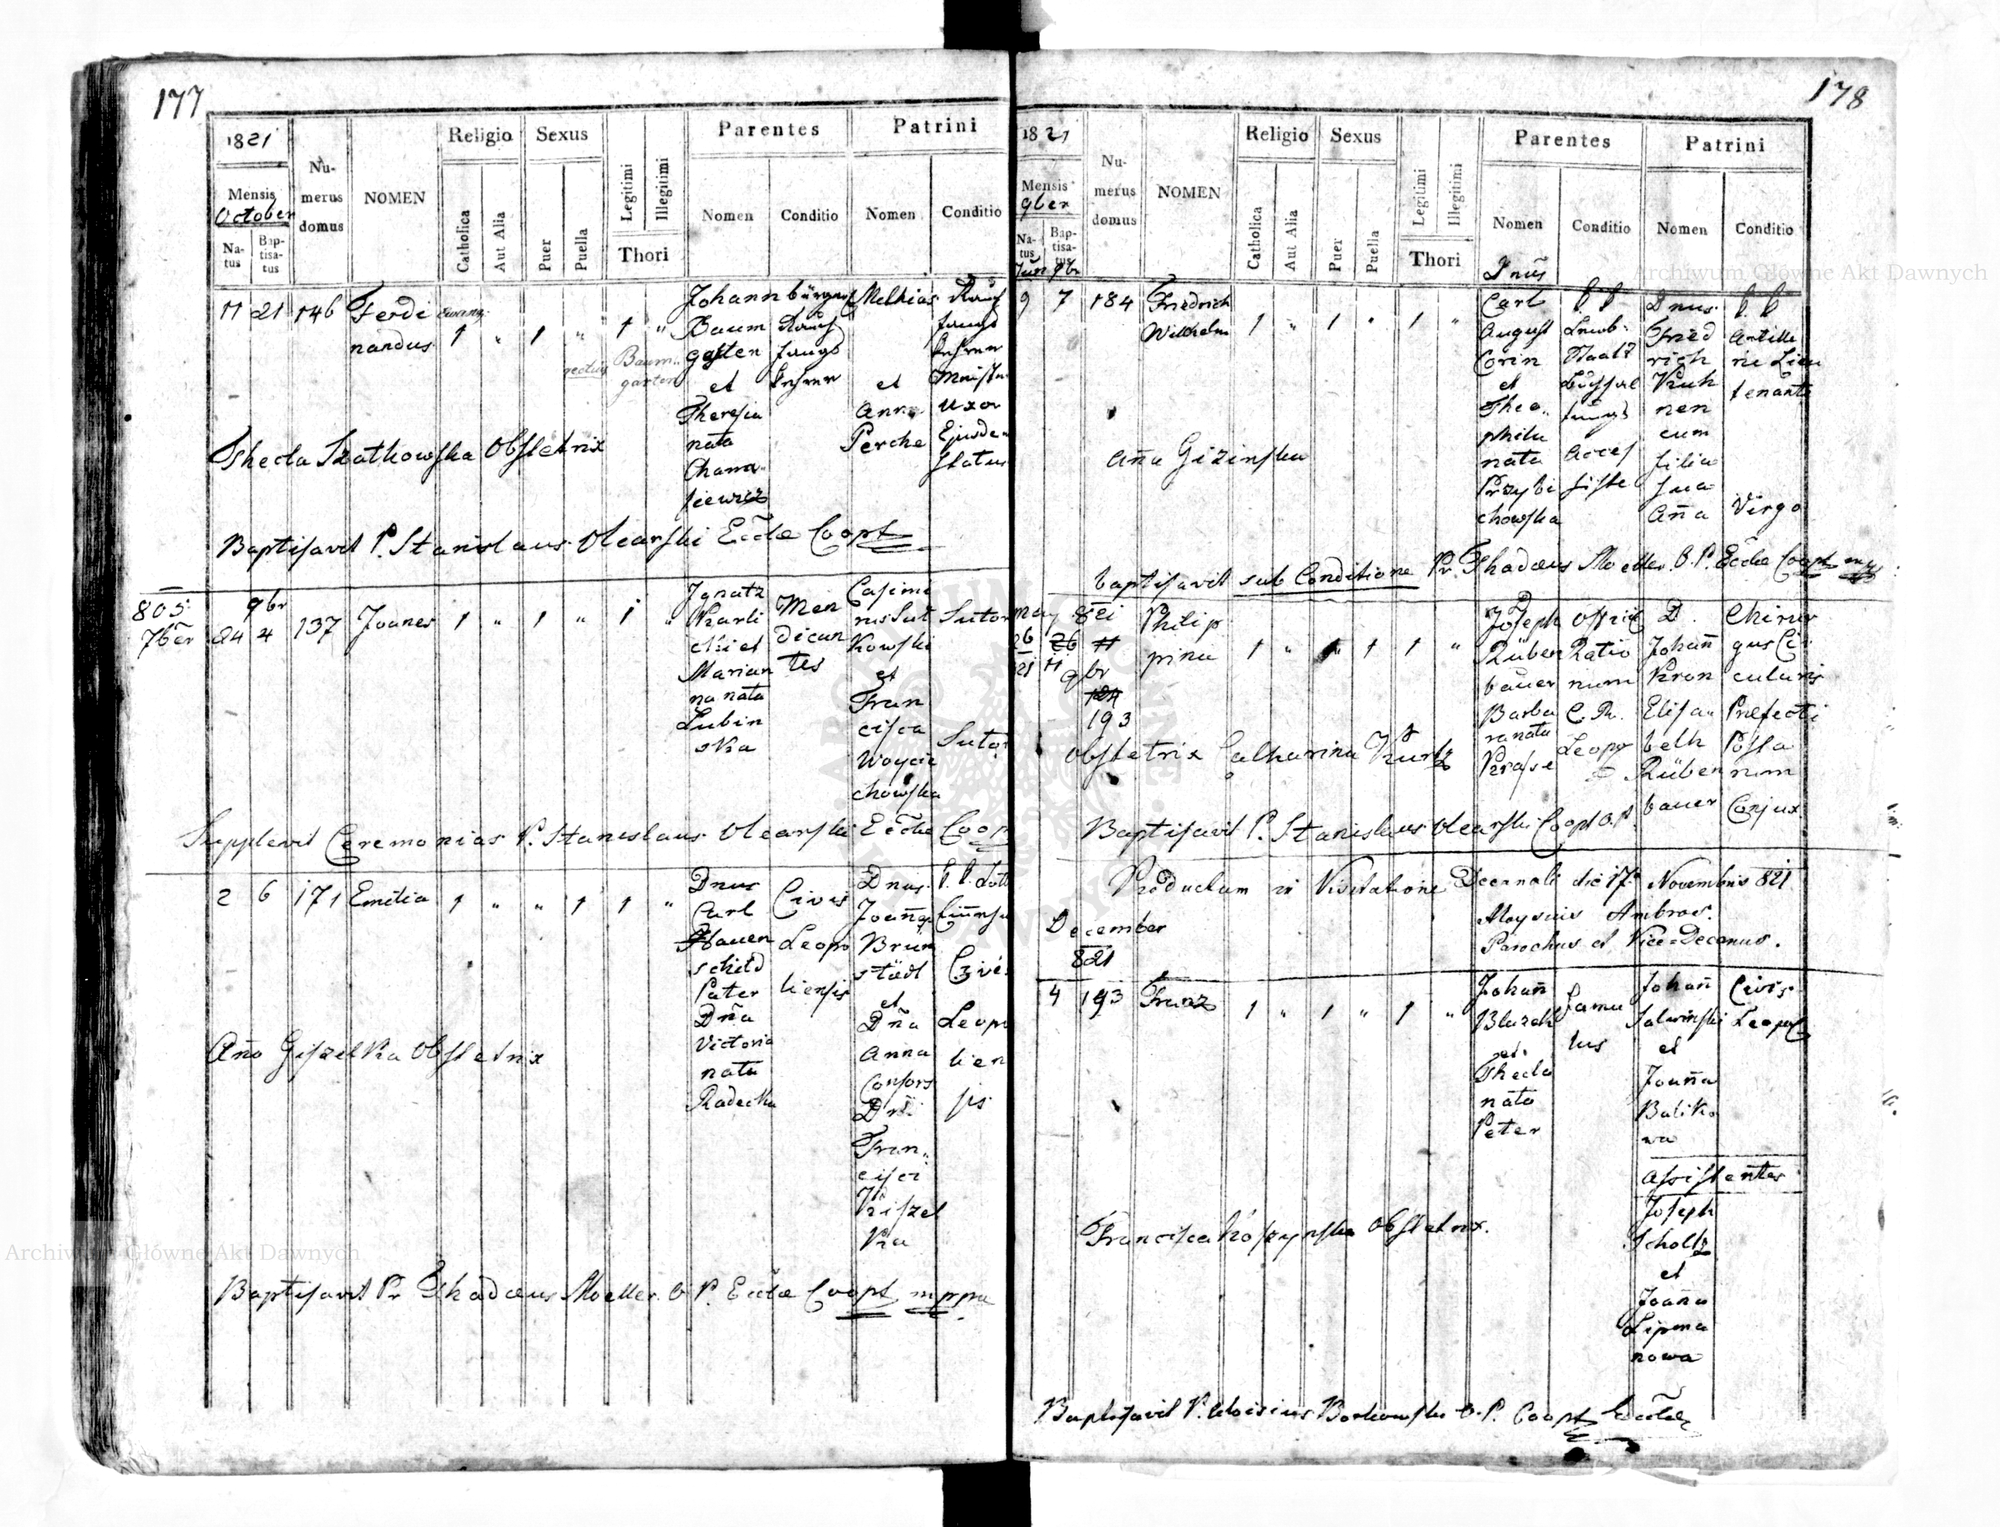 177
1821
Mensis
October
Na-
tus
Bap-
tisa-
tus
Nu-
merus
domus
NOMEN
Religio
Catholica
Aut Alia
Sexus
Puer
Puella
Legitimi
Illegitimi
Thori
Parentes
Nomen
Conditio
Patrini
Nomen
Conditio
17 21 146 Ferdi
nandus
1 " 1 " 1 "
rectius Baum-
garten
Johann bürger
Baum
garten
et
Theresia
nata
Melhias
et
Anna
Perche
Uxor
Ejusde
status
Thecla Szatkowska Obstetrix
Baptisavit P. Stanislaus Olearski Eccłae Coopt
805
7bēr
9br
24 4 137 Joanes 1 " 1 " 1 "
Ignatz
Karli
cki et
Marian
na nata
Lubin
ska
Men
dican
tes
Casimi
rus Sut
kowski
et
Fran
cisca
Woycie
chowska
Sutor
Sutor
Supplevit Ceremonias P. Stanislaus Olearski Eccłe Coop
2 6 171 Emilia 1 " " 1 1 "
Dnus
Carl
Hauen
schild
Pater
Dña
Victoria
nata
Radecka
Civis
Leopo
liensis
Dnus
Joañes
Brün
städl
et
Dña
Anna
Consors
Dni
Fran-
cisci
Kiszel
ka
Civis
Leopo
lien
sis
Aña Giszelka Obstetrix
Baptisavit Pr Thadæus Moeller O. P. Eccłæ Coopt mppa
178
1821
Mensis
9ber
Na-
tus
Bap-
tisa-
tus
Nu-
merus
domus
NOMEN
Religio
Catholica
Aut Alia
Sexus
Puer
Puella
Legitimi
Illegitimi
Thori
Parentes
Nomen
Conditio
Patrini
Nomen
Conditio
Jun 9br
9 7 184 Friedrich
Wilhelm
1 " 1 " 1 "
Dnus
Carl
August
Corin
et
Theo-
phila
nata
Przybi
chowska
Acces
siste
Dnus
Fried
rich
Kuh
nen
cum
filia
sua
Aña
Artille
rie Lieu
tenants
Virgo
Aña Gizinska
baptisavit sub Conditione Pr. Thadæus Moeller O. P. Eccłæ Coopt
May
26
821
9br
193
Philip
pina
1 " 1 1 "
Joseph
Rüben
bauer
Barba
ra nata
Krase
Offici
Ratio
num
C. R.
Leopo
D.
Johañ
Kron
Elisa-
beth
Rüben
bauer
Chirur
gus Cir
cularis
Præfecti
Possa
num
Conjux
Obstetrix Catharina Kurtz
Baptisavit P. Stanislaus Olearski Coopt O.P.
Productum in Visitatione Decanali die 17 Novembris 821.
Aloysius Ambros.
Parochus et Vice-Decanus.
December
821
4 193 Franz 1 " 1 " 1 "
Johañ
Blazek
et
Thecla
nata
Peter
Famu
lus
Johañ
Salwinski
et
Joaña
Baliko
wa
Civis
Leopol
Assistentes
Joseph
Scholtz
et
Joaña
Lipma
nowa
Francisca Koszynska Obstetrix.
Baptisavit P. Aloisius Borkowski O. P. Coopt Eccłæ
Archiwum Główne Akt Dawnych
Archiwum Główne Akt Dawnych